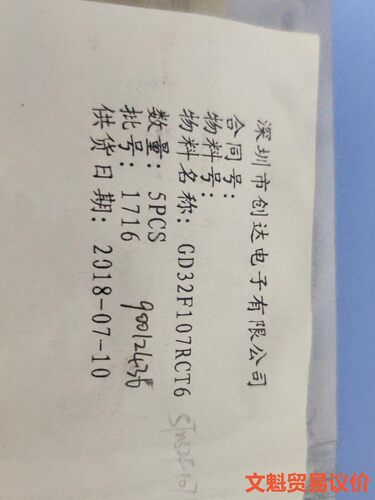 深圳市创达电子有限公司
合同号:
物料号:
物料名称: GD32F107RCT6
数量: 5PCS
批号: 1716
供货日期: 2018-07-10
900124356
文魁贸易议价